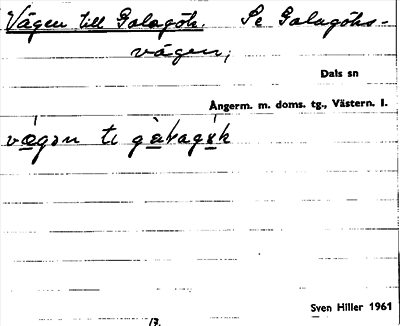 Vägen till Galagök. Se Galagöks-
vägen;
Dals sn
Ångerm. m. doms. tg., Västern. l.
Sven Hiller 1961